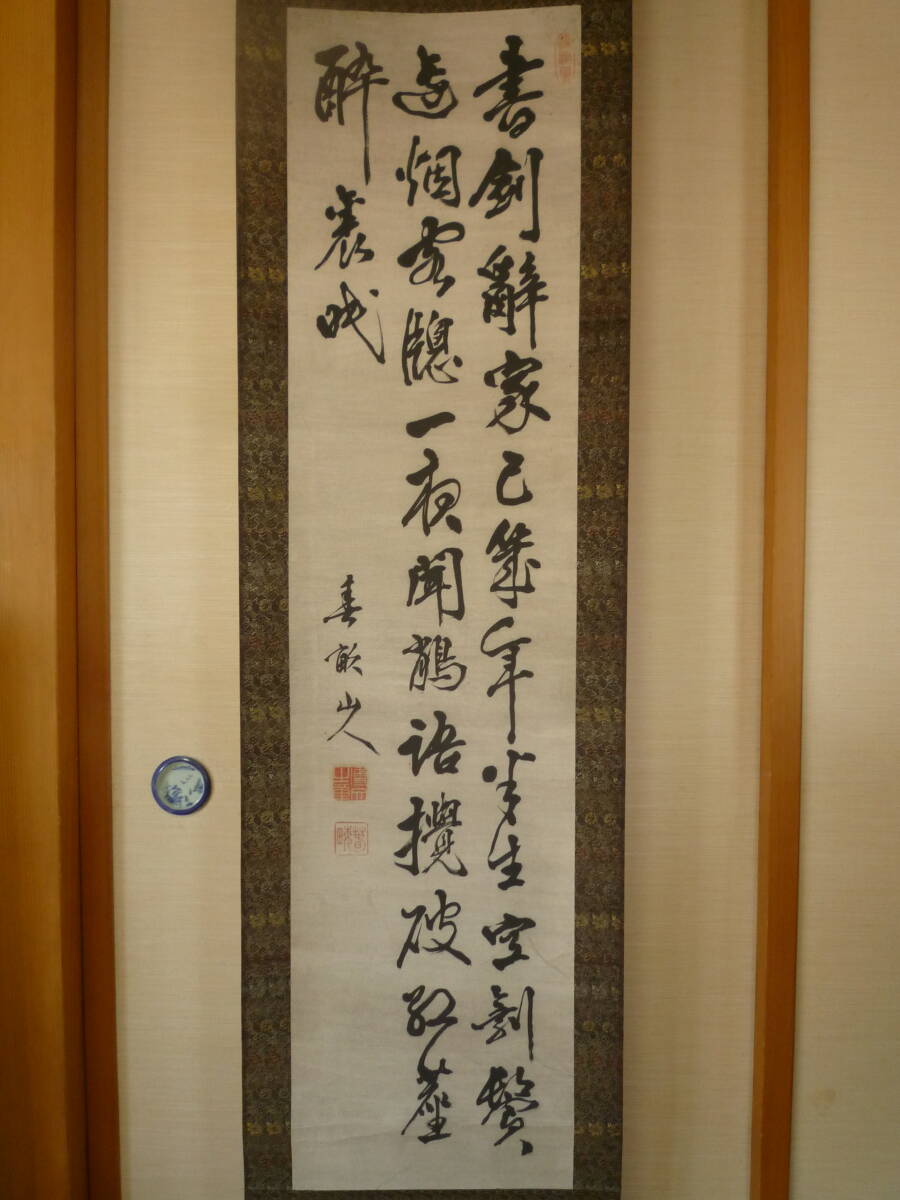 書劍辭家已幾年半生空剩鬢
邊烟客牕一夜聞鵑語攪破紅塵
醉裏眠
春畝山人